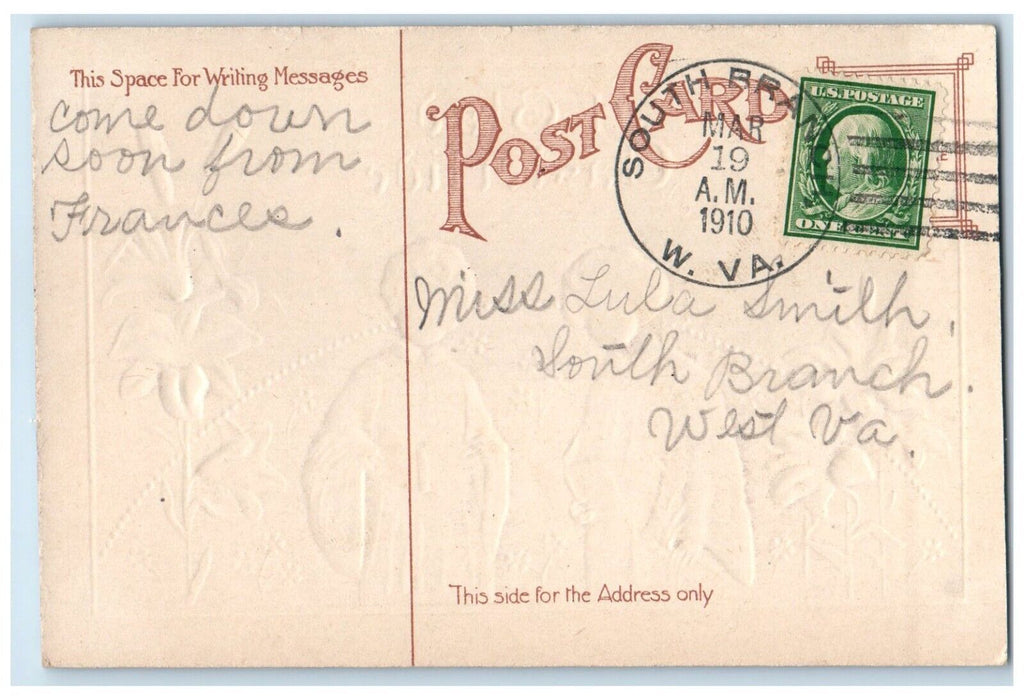 This Space For Writing Messages
come down
soon from
Frances.
POST CARD
SOUTH BRAN
MAR
19
A.M.
1910
W. VA.
U.S. POSTAGE
ONE CENT
Miss Lula Smith,
South Branch.
West Va.
This side for the Address only